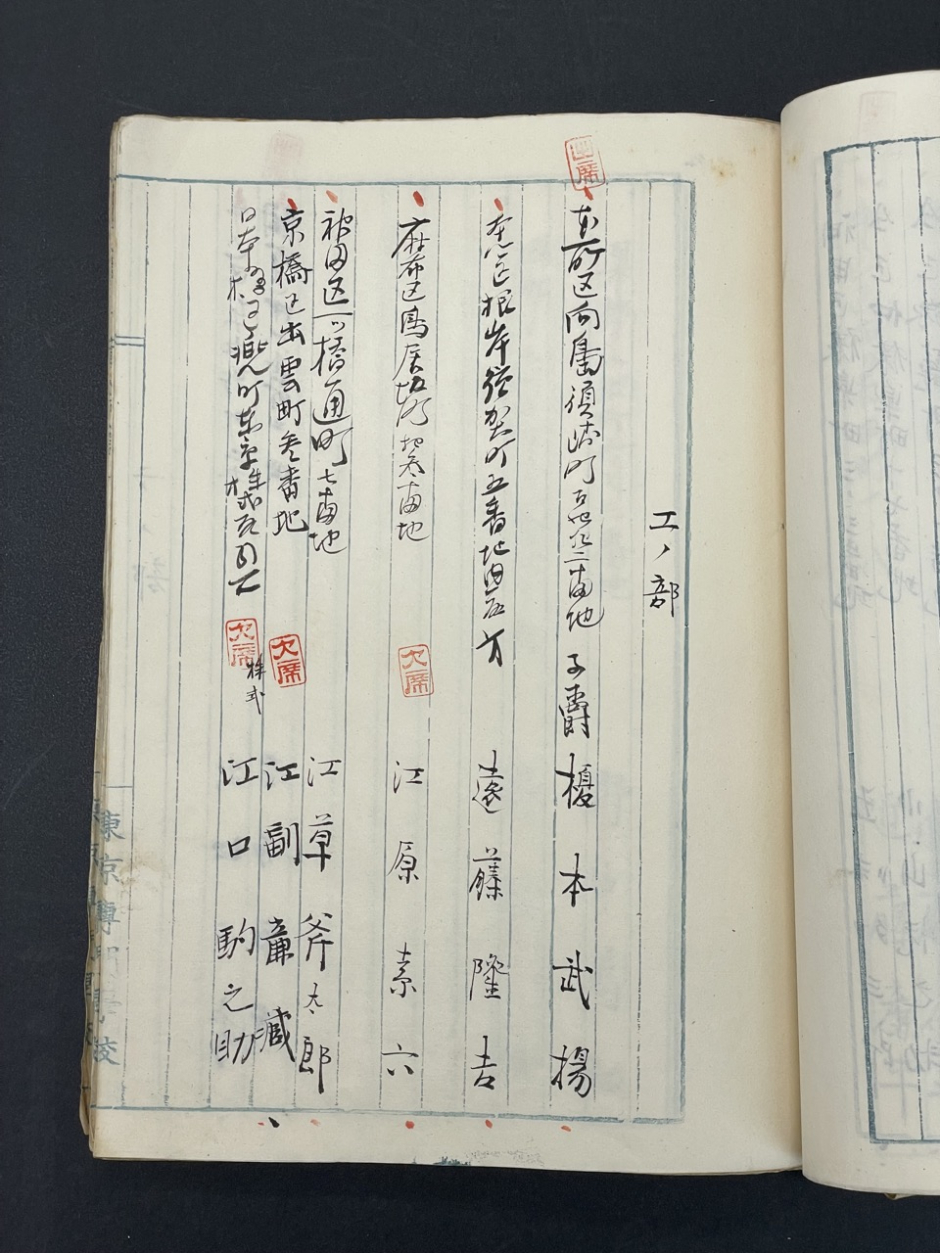 エノ部
出席
本所区向島須崎町 番地 子爵 榎本武揚
根岸 町五番地 方 遠藤隆吉
麻布区鳥居坂町 番地 欠席 江原素六
神田区一ツ橋通町七番地 江草斧太郎
京橋区出雲町参番地 欠席 江副廉蔵
日本橋区兜町東京株式 欠席 株式 江口駒之助
東京専門学校